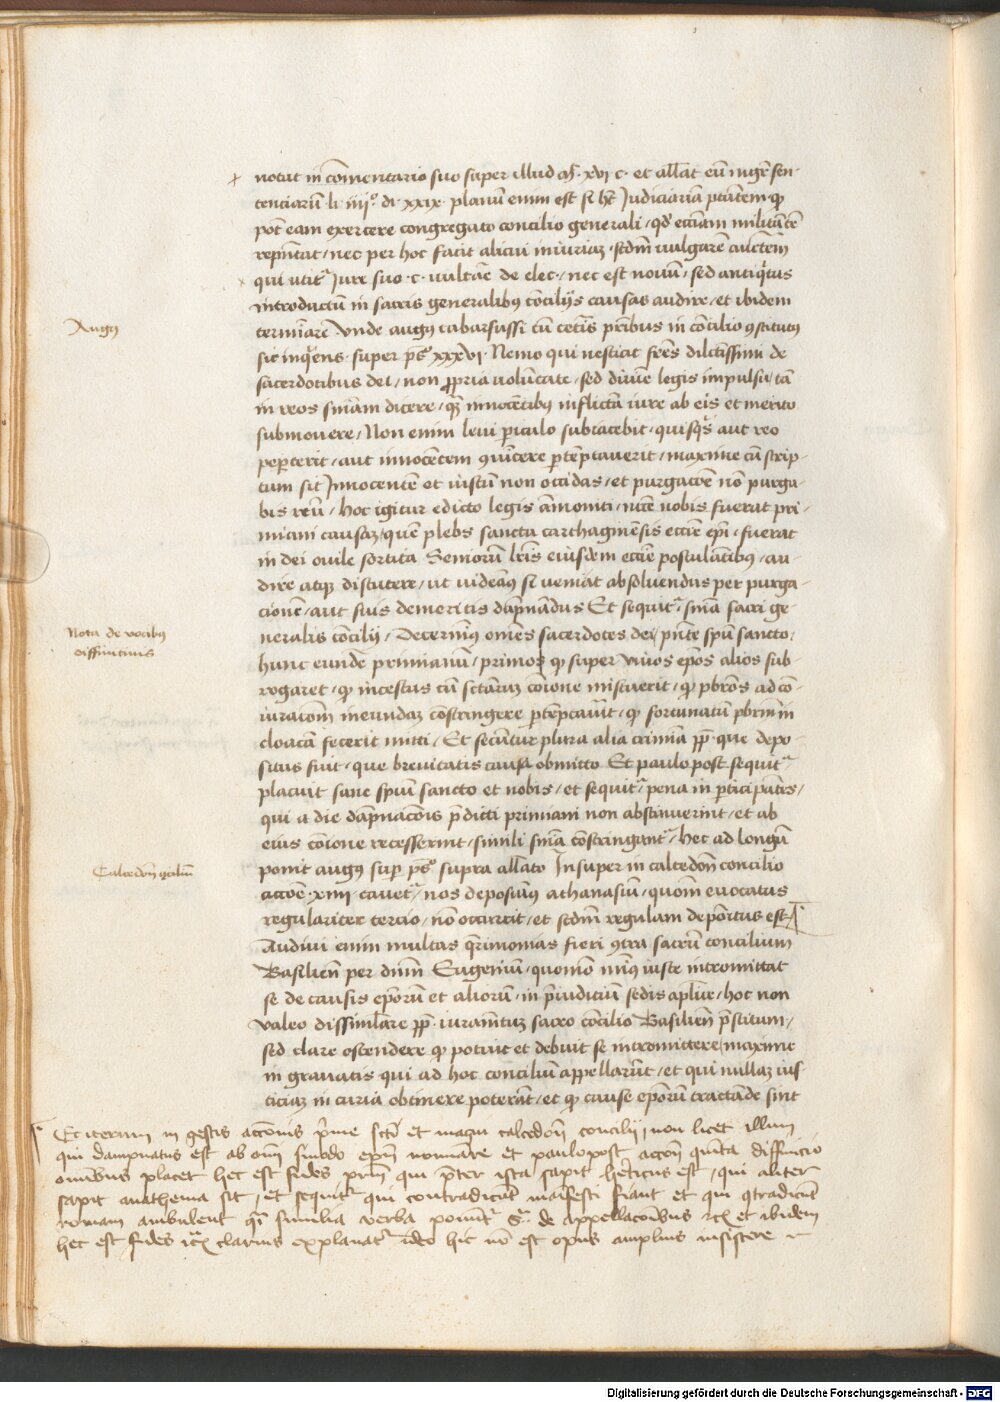 notat in co̅mentario suo super illud mͭ. xvi c. et all̅at eu̅ mgr̅ sen-
tenciaru̅ li iiijͦ. di. xxix. planu̅ enim est si ht̅ Judiciaria̅ pt̅atem. ꝙ
pot̅ eam exercere congregato concilio generali / qd̅ ecc̅iam milita̅te̅
repn̅tat / nec per hoc facit alicui iniuriaꝫ. scdm̅ vulgare̅ auctem̅
qui utitr̅ Jure suo. c. cu̅ ecc̅ia de elec. / nec est nouu̅ / sed antiq̅tus
introductu̅ in sacris generalibꝰ co̅cilijs causas audire / et ibidem
termi̅are Vnde augꝰ cabarsussi cu̅ cet̅is pr̅ibus in co̅cilio ꝯstitutꝰ
sic inq̅ens. super ps̅ xxxvi. Nemo qui nesciat fr̅es dilc̅tissimi de
sacerdotibus dei / non ꝓpria volu̅tate / sed diuine legis impulsu / ta̅
in reos sn̅iam dicere / qꝫ innoce̅tibꝰ inflicta̅ iure ab eis et merito
submouere / Non enim leui ꝑiculo subiacebit / quisqꝰ aut reo
peꝑcerit / aut innoce̅tem ꝯui̅cere ꝑte̅ptauerit / maxime cu̅ scrip-
tum sit Innocente̅ et iustu̅ non occidas / et purgac̅oe̅ no̅ purga-
bis reu̅ / hoc igitur edicto legis a̅moniti / nc̅e nobis fuerat pri-
miani causaꝫ / que̅ plebs sancta carthagine̅sis ecc̅ie ep̅m / fuerat
in dei ouile sortita Senioru̅ lr̅is eiusdem ecc̅ie postula̅tibꝰ / au-
dire atqꝫ discutere / ut videa̅ꝰ si veniat absoluendus per purga-
cione̅ / aut suis demeritis da̅pna̅dus Et sequitr̅ sn̅ia sacri ge-
neralis co̅cilij / Decernimꝰ om̅es sacerdotes dei / pn̅te spu̅ sancto /
hunc eunde̅ primianu̅ / primo ꝙ super viuos ep̅os alios sub-
rogaret / ꝙ incestus cu̅ sc̅taruꝫ co̅ione miscuerit / ꝙ pbr̅os ad co̅-
iuracio̅m ineundaꝫ co̅stringere ꝑte̅ptauit / ꝙ fortunatu̅ pbrm̅ in
cloaca̅ fecerit mitti / Et secu̅tur plura alia crimi̅a pp̅ que depo-
situs fuit / que breuitatis causa obmitto Et paulo post sequitr̅
placuit sane spu̅i sancto et nobis / et sequitr̅ pena in ꝑticipa̅tes /
qui a die da̅pnac̅ois p̅dicti primiani non abstinuerint / et ab
eius co̅ione recesserint / simili sn̅ia co̅stringant̅ / hec ad longu̅
ponit augꝰ sup̅ ps̅ supra all̅ato Insuper in calcedon̅ concilio
acc̅oe. xiiii. cauetr̅ nos deposuimꝰ athanasiu̅ / quonia̅ euocatus
regulariter tercio / no̅ occurrit / et scdm̅ regulam depo̅itus est
Audiui enim multas q̅rimonias fieri ꝯtra sacru̅ concilium
Basilien̅ per dn̅m Eugeniu̅ / quomo̅ mi̅ꝰ iuste intromittat
se de causis ep̅oru̅ et alioru̅ / in p̅iudiciu̅ sedis ap̅lice / hoc non
valeo dissimulare pp̅ iurame̅tuꝫ sacro co̅cilio Basilien̅ p̅stitum /
sed clare ostendere ꝙ potuit et debuit se intromittere / maxime
in grauatis qui ad hoc conciliu̅ appellaru̅t / et qui nullaꝫ ius-
ticiaꝫ in curia obtinere potera̅t / et ꝙ cause ep̅oru̅ tracta̅de sint
Et iterum in gestis acc̅onis p̅me sc̅ti et magni calcedon̅ concilij / non licet illum
qui dampnatus est ab om̅i sinodo ep̅m nominare et paulopost acc̅on quinta diffinicio
omnibus placet hec est fides pr̅um qui p̅ter ista sapit he̅ticus est / qui aliter
sapit anathema sit / et sequitr̅ qui contradicu̅t maifesti fiant et qui ꝯtradicu̅t
romam ambulent
hec est fides
Augꝰ
Nota de vocibus
diffinitiuis
Calcedon̅ ꝯciliu̅
Digitalisierung gefördert durch die Deutsche Forschungsgemeinschaft - DFG